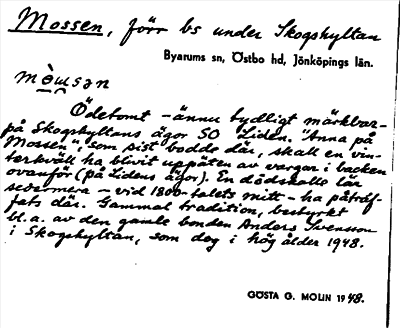 Mossen, förr bs under Skogshyltan
Byarums sn, Östbo hd, Jönköpings län.
Ödetomt - ännu tydligt märkbar -
på Skogshyltans ägor SO Liden. "Anna på
Mossen", som sist bodde där, skall en vin-
terkväll ha blivit uppäten av vargar i backen
ovanför (på Lidens ägor). En dödskalle lär
sedermera - vid 1800-talets mitt - ha påträf-
fats där. Gammal tradition, bestyrkt
bl.a. av den gamle bonden Anders Svensson
i Skogshyltan, som dog i hög ålder 1948.
GÖSTA G. MOLIN 1948.